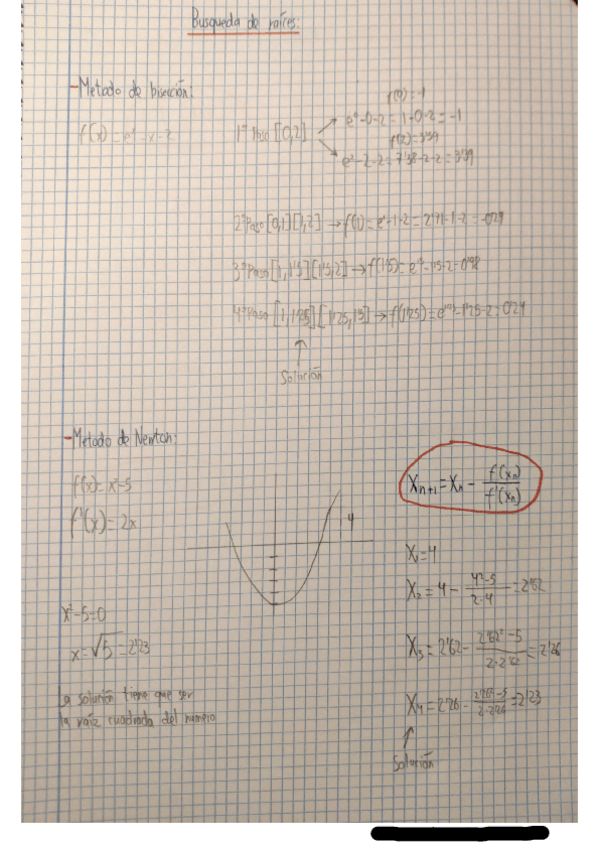 Busqueda de raíces:
- Metodo de bisección:
f(x) = eˣ - x - 2
1ᵉʳ Paso [0,2]
f(0) = -1
e⁰ - 0 - 2 = 1 + 0 - 2 = -1
f(2) = 3'39
e² - 2 - 2 = 7'38 - 2 - 2 = 3'39
2º Paso [0,1] [1,2] → f(1) = e¹ - 1 - 2 = 2'71 - 1 - 2 = -0'29
3º Paso [1,1'5] [1'5,2] → f(1'5) = e^1'5 - 1'5 - 2 = 0'98
4º Paso [1,1'25] [1'25,1'5] → f(1'25) = e^1'25 - 1'25 - 2 = 0'24
↑
Solución
- Metodo de Newton:
f(x) = x² - 5
f'(x) = 2x
4
x² - 5 = 0
x = √5 = 2'23
La solución tiene que ser
la raíz cuadrada del numero
Xₙ₊₁ = Xₙ - f(Xₙ) / f'(Xₙ)
X₁ = 4
X₂ = 4 - (4² - 5) / (2·4) = 2'62
X₃ = 2'62 - (2'62² - 5) / (2·2'62) = 2'26
X₄ = 2'26 - (2'26² - 5) / (2·2'26) = 2'23
↑
Solución